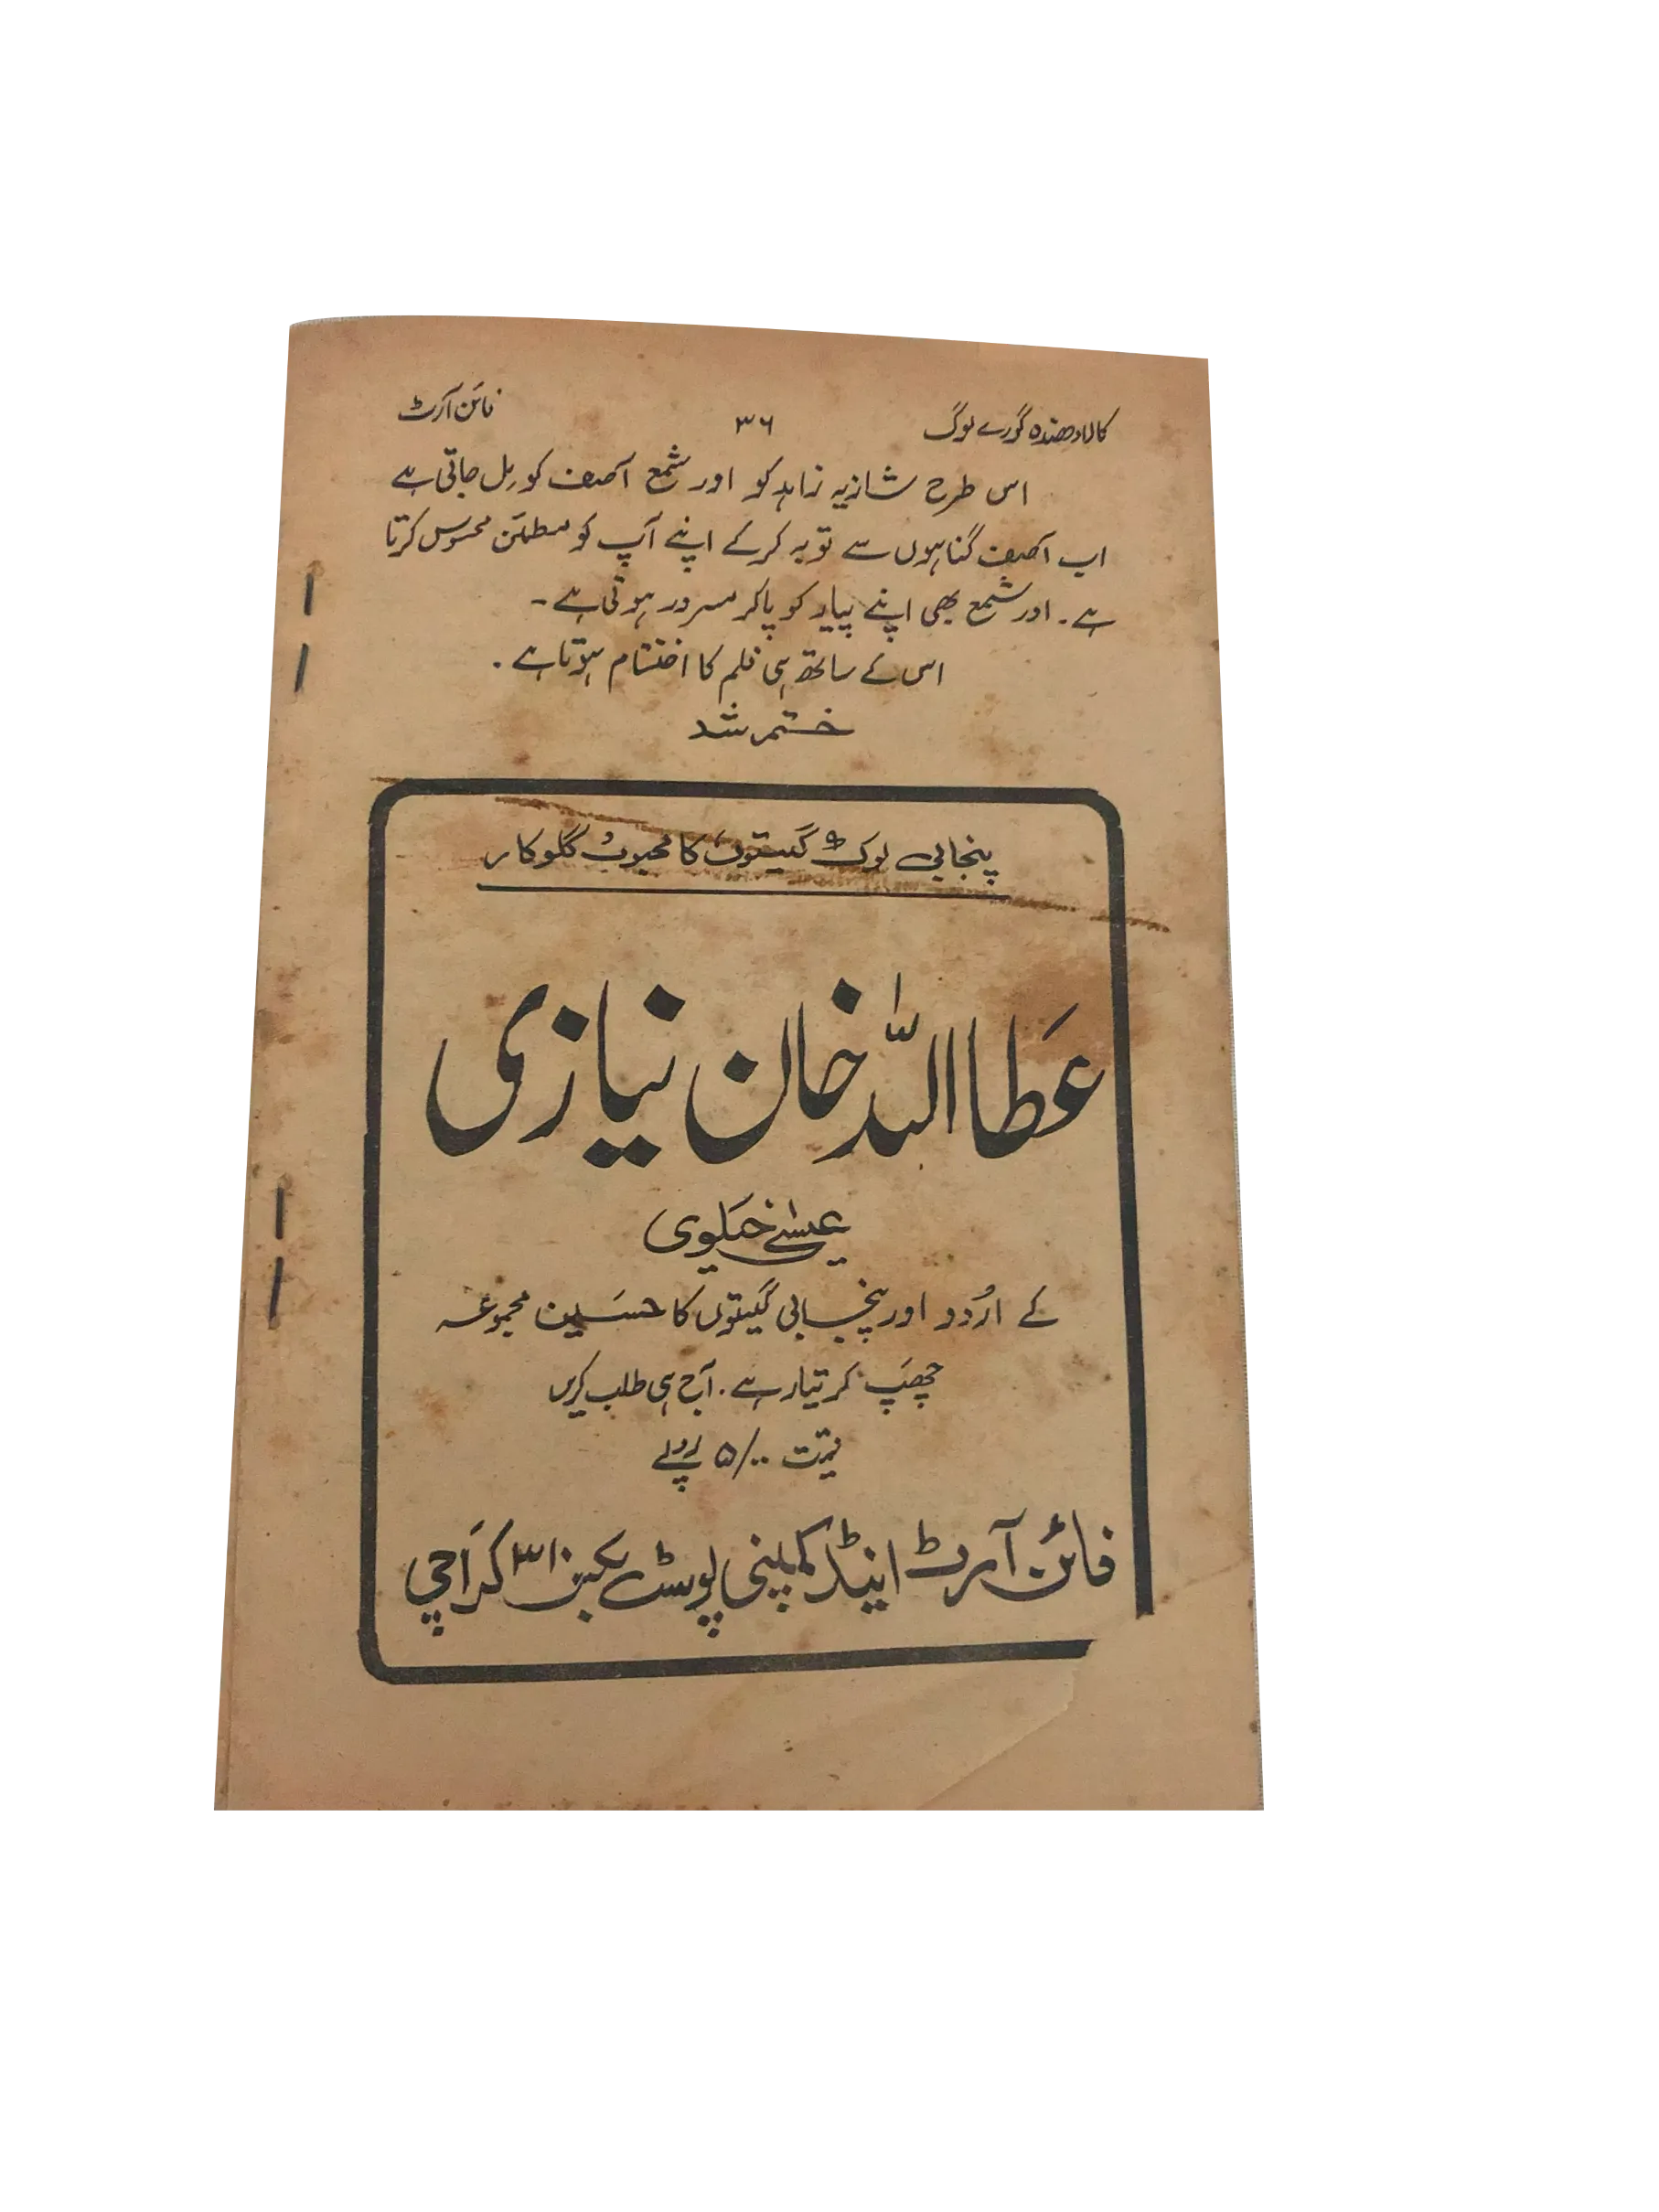 کالا دھندہ گورے لوگ ۳۶ فائن آرٹ
اس طرح شازیہ زاہد کو اور شمع آصف کو مل جاتی ہے
اب آصف گناہوں سے توبہ کر کے اپنے آپ کو مطمئن محسوس کرتا
ہے۔ اور شمع بھی اپنے پیار کو پا کر مسرور ہوتی ہے۔
اس کے ساتھ ہی فلم کا اختتام ہوتا ہے۔
ختم شد
پنجابی لوک گیتوں کا محبوب گلوکار
عطا اللہ خان نیازی
عیسیٰ خیلوی
کے اردو اور پنجابی گیتوں کا حسین مجموعہ
چھپ کر تیار ہے۔ آج ہی طلب کریں
قیمت ۵/۰۰ روپے
فائن آرٹ اینڈ کمپنی پوسٹ بکس ۳۱۰ کراچی